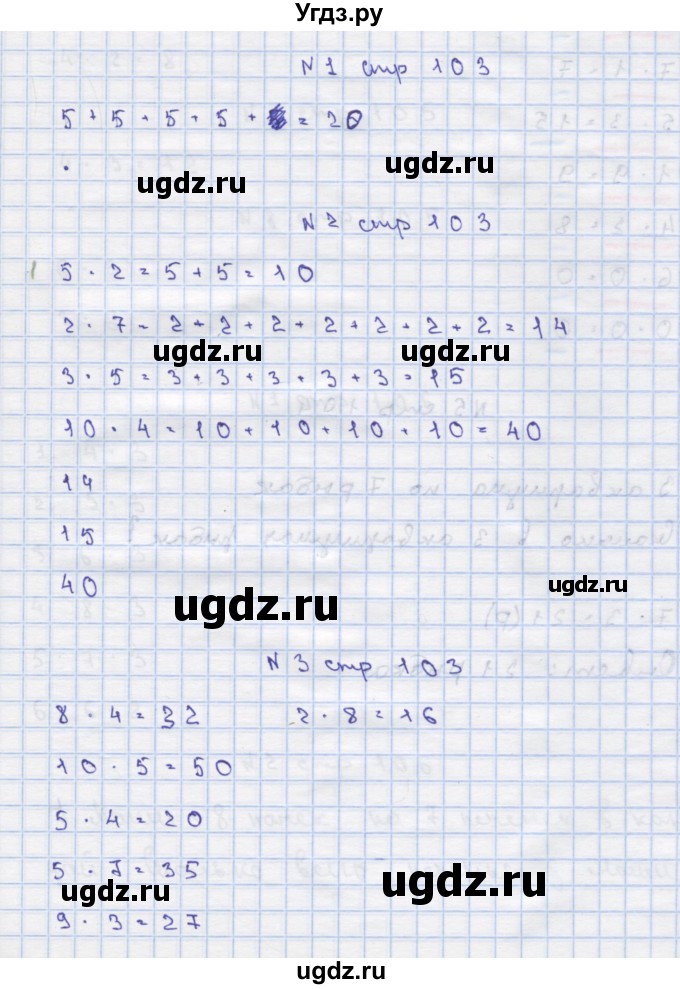 Угдз.ру
N 1 стр 103
5 + 5 + 5 + 5 + = 20
ugdz.ru ugdz.ru
N 2 стр 103
5 · 2 = 5 + 5 = 10
2 · 7 = 2 + 2 + 2 + 2 + 2 + 2 + 2 = 14
ugdz.ru ugdz.ru
3 · 5 = 3 + 3 + 3 + 3 + 3 = 15
10 · 4 = 10 + 10 + 10 + 10 = 40
14
15
40
ugdz.ru ugdz.ru
N 3 стр 103
8 · 4 = 32 2 · 8 = 16
10 · 5 = 50
5 · 4 = 20
5 · 7 = 35
ugdz.ru ugdz.ru
9 · 3 = 27
ugdz.ru